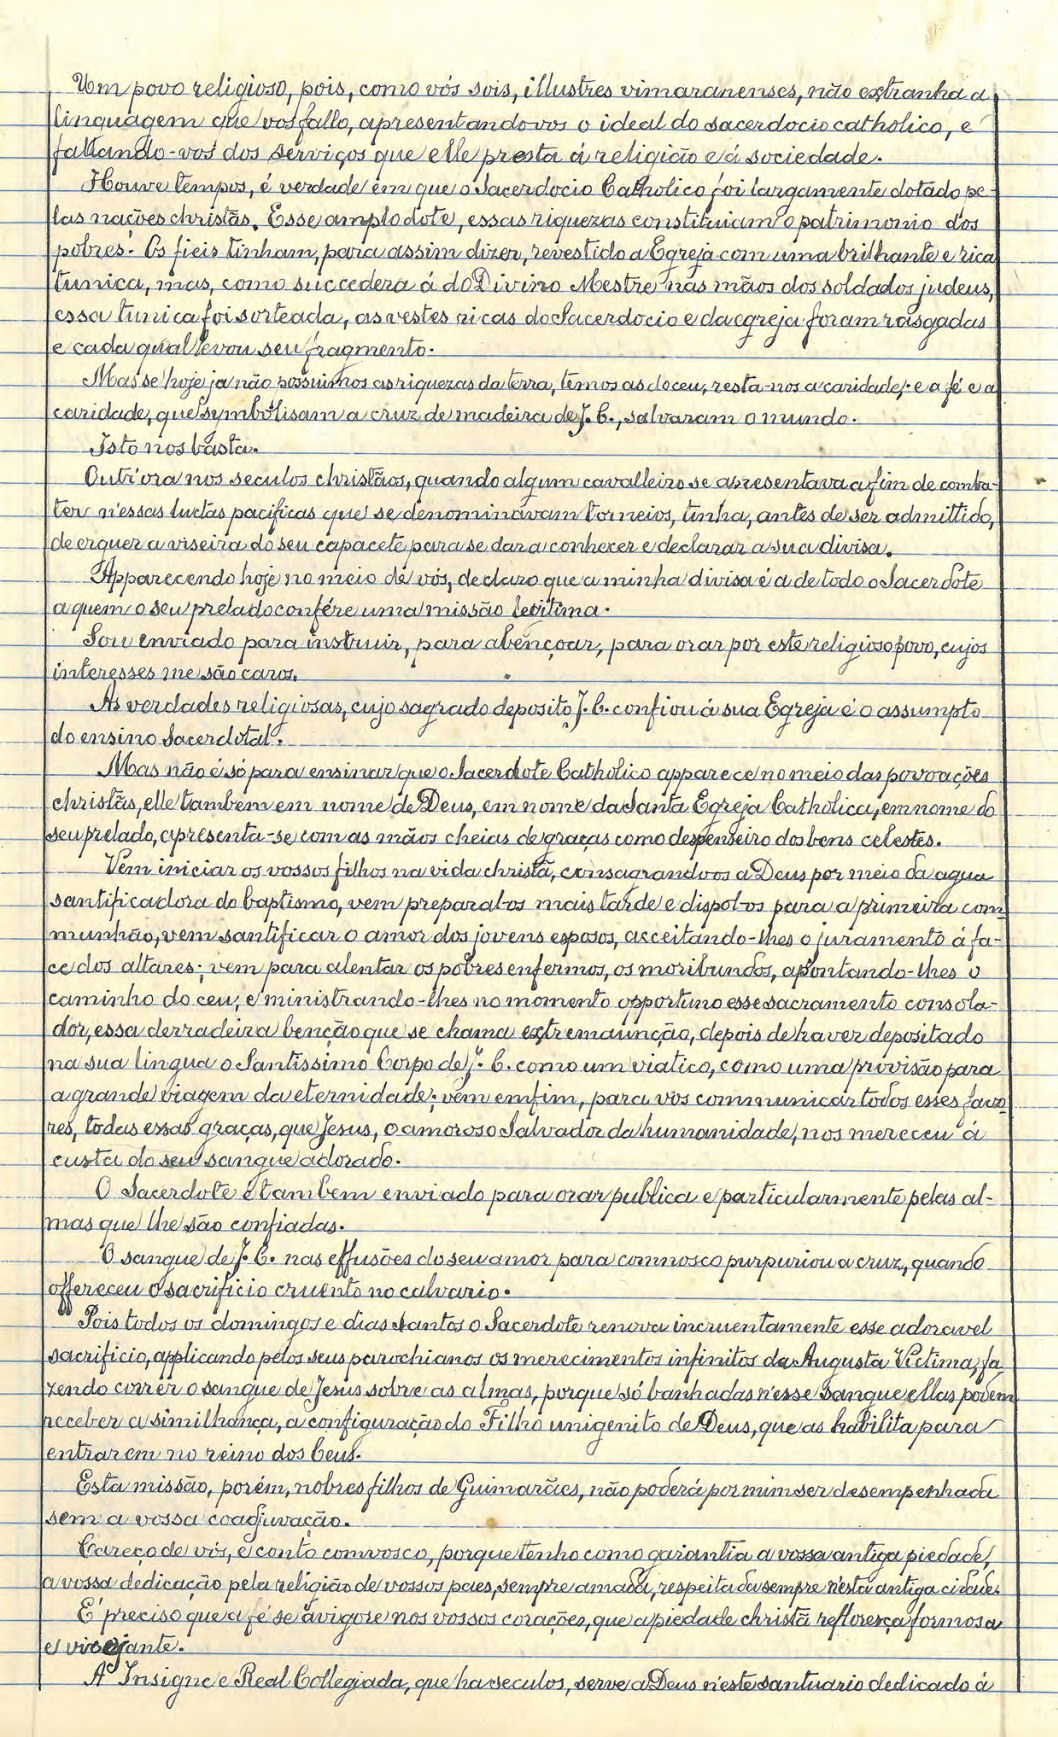 Um povo religioso, pois, como vós sois, illustres vimaranenses, não extranha a
linguagem que vos fallo, apresentando-vos o ideal do sacerdocio catholico, e
fallando-vos dos serviços que elle presta á religião e á sociedade.
Houve tempos, é verdade em que o Sacerdocio Catholico foi largamente dotado pe-
las nações christãs. Esse amplo dote, essas riquezas constituiam o patrimonio dos
pobres. Os fieis tinham, para assim dizer, revestido a Egreja com uma brilhante e rica
tunica, mas, como succedera á do Divino Mestre nas mãos dos soldados judeus,
essa tunica foi sorteada, as vestes ricas do Sacerdocio e da egreja foram rasgadas
e cada qual levou seu fragmento.
Mas se hoje ja não possuimos as riquezas da terra, têmos as do ceu, resta-nos a caridade; e a fé e a
caridade, que symbolisam a cruz de madeira de J. C., salvaram o mundo.
Isto nos basta.
Outr'ora nos seculos christãos, quando algum cavalleiro se apresentava a fim de comba-
ter n'essas luctas pacificas que se denominavam torneios, tinha, antes de ser admittido,
de erguer a viseira do seu capacete para se dar a conhecer e declarar a sua divisa.
Apparecendo hoje no meio de vós, declaro que a minha divisa é a de todo o Sacerdote
a quem o seu prelado confére uma missão legitima.
Sou enviado para instruir, para abençoar, para orar por este religioso povo, cujos
interesses me são caros.
As verdades religiosas, cujo sagrado deposito J. C. confiou á sua Egreja é o assumpto
do ensino Sacerdotal.
Mas não é só para ensinar que o Sacerdote Catholico apparece no meio das povoações
christãs, elle tambem em nome de Deus, em nome da Santa Egreja Catholica, em nome do
seu prelado, apresenta-se com as mãos cheias de graças como despenseiro dos bens celestes.
Vem iniciar os vossos filhos na vida christã, consagrando-os a Deus por meio da agua
santificadora do baptismo, vem preparal-os mais tarde e dispol-os para a primeira com-
munhão, vem santificar o amor dos jovens esposos, acceitando-lhes o juramento á fa-
ce dos altares; vem para alentar os pobres enfermos, os moribundos, apontando-lhes o
caminho do ceu, e ministrando-lhes no momento opportuno esse sacramento consola-
dor, essa derradeira benção que se chama extrema unção, depois de haver depositado
na sua lingua o Santissimo Corpo de J. C. como um viatico, como uma provisão para
a grande viagem da eternidade; vem emfim, para vos communicar todos esses favo-
res, todas essas graças, que Jesus, o amoroso Salvador da humanidade, nos mereceu á
custa do seu sangue adorado.
O Sacerdote é tambem enviado para orar publica e particularmente pelas al-
mas que lhe são confiadas.
O sangue de J. C. nas effusões do seu amor para comnosco purpuriou a cruz, quando
offereceu o sacrificio cruento no calvario.
Pois todos os domingos e dias Santos o Sacerdote renova incruentamente esse adoravel
sacrificio, applicando pelos seus parochianos os merecimentos infinitos da Augusta Victima, fa-
zendo correr o sangue de Jesus sobre as almas, porque só banhadas n'esse sangue ellas podem
receber a similhança, a configuração do Filho unigenito de Deus, que as habilita para
entrarem no reino dos Ceus.
Esta missão, porém, nobres filhos de Guimarães, não poderá por mim ser desempenhada
sem a vossa coadjuvação.
Careço de vós, e conto comvosco, porque tenho como garantia a vossa antiga piedade,
a vossa dedicação pela religião de vossos paes, sempre amada, respeitada sempre n'esta antiga cidade.
É preciso que a fé se avigore nos vossos corações, que a piedade christã refloresça formosa
e vicejante.
A Insigne e Real Collegiada, que ha seculos, serve a Deus n'este santuario dedicado á